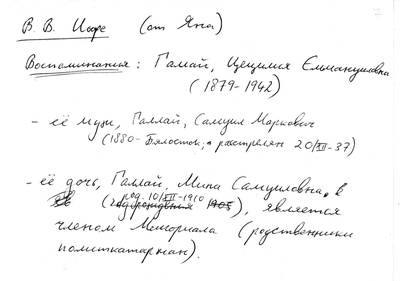 В. В. Иофе (от Яна)
Воспоминания: Галлай, Цецилия Емануиловна
(1879-1942)
- её муж, Галлай, Самуил Маркович
(1880- Бялосток, расстрелян 20/XII-37)
- её дочь, Галлай, Мина Самуиловна,
род. 10/XII-1910
(годрождения 1905), является
членом Мемориала (родственники
политкаторжан).